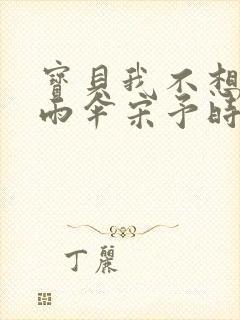 寶貝我不想
雨傘宋予時
丁麗